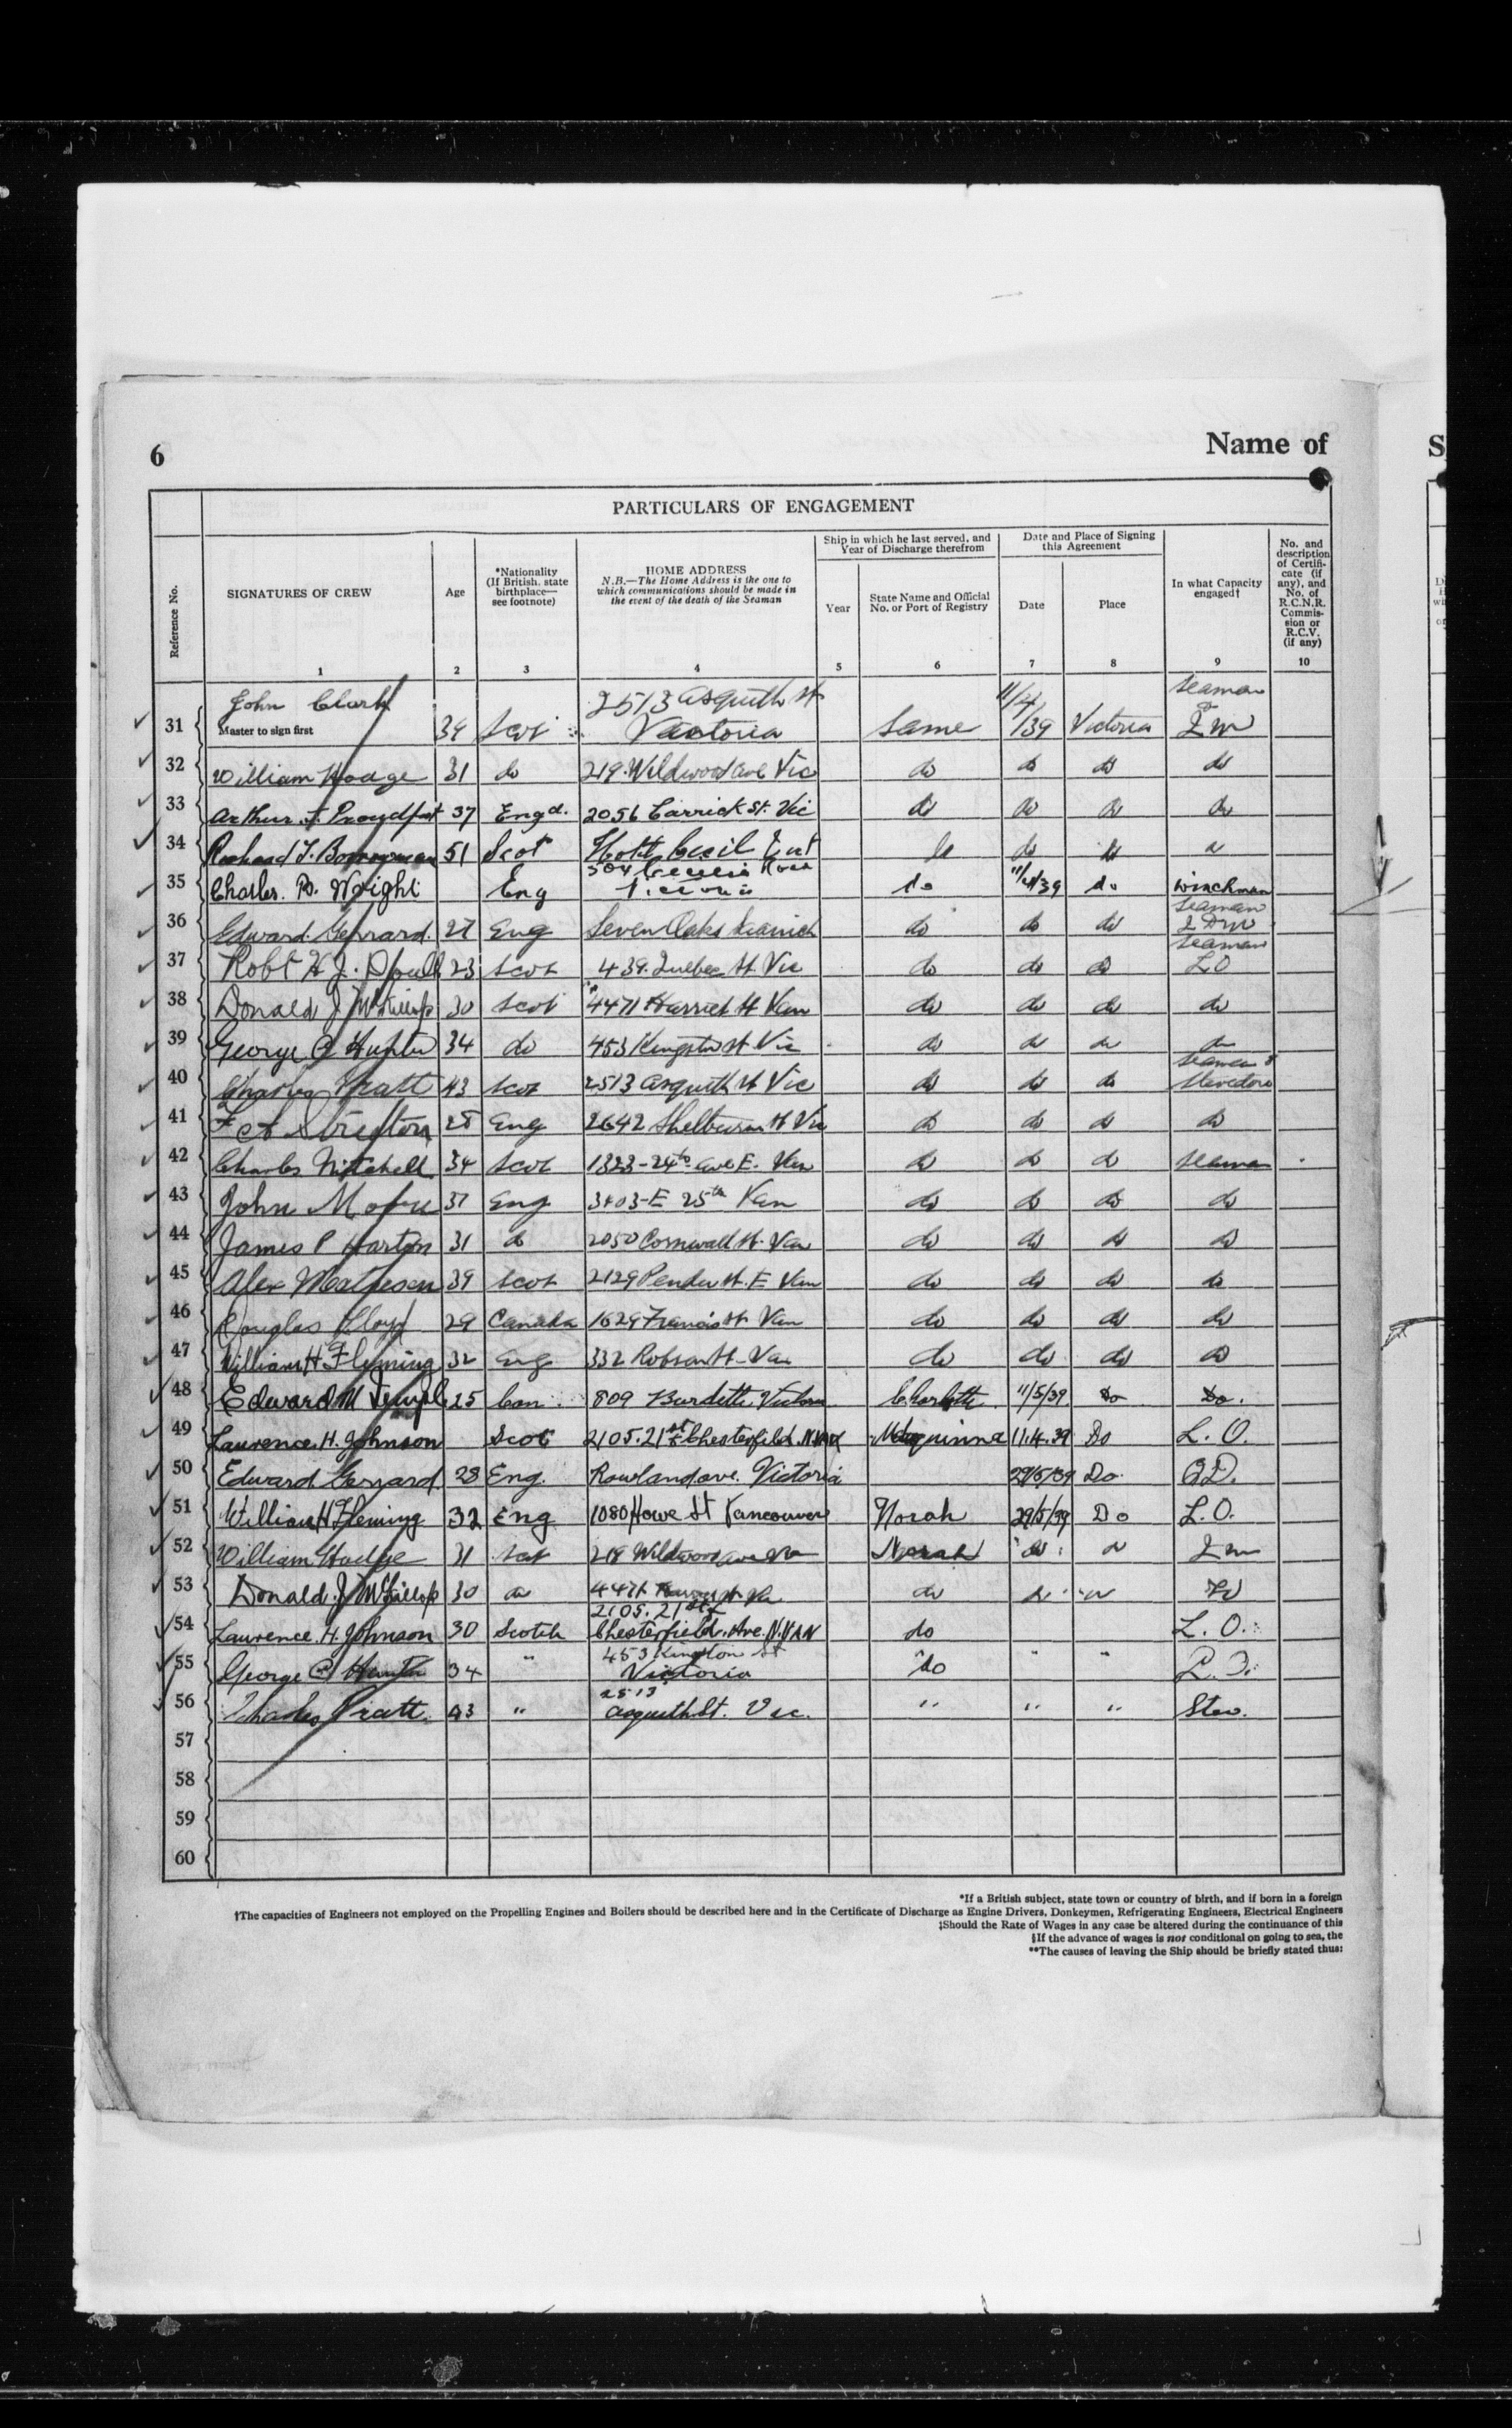 6
Name of
S
PARTICULARS OF ENGAGEMENT
Reference No.
SIGNATURES OF CREW
Age
*Nationality
(If British, state
birthplace—
see footnote)
HOME ADDRESS
N.B.—The Home Address is the one to
which communications should be made in
the event of the death of the Seaman
Ship in which he last served, and
Year of Discharge therefrom
Year
State Name and Official
No. or Port of Registry
Date and Place of Signing
this Agreement
Date
Place
In what Capacity
engaged†
No. and
description
of Certifi-
cate (if
any), and
No. of
R.C.N.R.
Commis-
sion or
R.C.V.
(if any)
1 2 3 4 5 6 7 8 9 10
John Clark 2513 Asquith St 11/4 Seaman
31 Master to sign first 39 Scot Victoria Same /39 Victoria
32 William Hodge 31 do 219 Wildwood ave Vic do do do do
33 Arthur Proudfoot 37 Engd. 2056 Carrick St. Vic do do do do
34 51 Scot Hotel Cecil do do
35 Charles. Wright Eng do 11/4/39 do Winchman
Seaman
36 Edward Gerrard 27 Eng Seven Oaks Saanich do do do
Seaman
37 Robt H J. 23 Scot 439 Quebec St Vic do do do LO
38 Donald J McKillop 30 Scot 4471 Harriet St Van do do do do
39 George C Hunter 34 do 453 Kingston St Vic do do do do
Seaman &
40 Charles Pratt 43 Scot 2513 Asquith St Vic do do do Stevedore
41 28 Eng 2642 Shelbourn St Vic do do do do
42 Charles Mitchell 34 Scot 1323-24th ave E. Van do do do Seaman
43 John 37 Eng 3403-E 25th Van do do do do
44 James P Harton 31 do 2050 Cornwall St. Van do do do do
45 Alex Matheson 39 Scot 2129 Pender St. E Van do do do do
46 Douglas Lloyd 29 Canada 1629 Francis St Van do do do do
47 William H Fleming 32 Eng 332 Robson St-Van do do do do
48 Edward M Temple 25 Can. 809 Burdette Victoria Charlotte 11/5/39 Do Do.
49 Laurence. H. Johnson Scot 2105.21st Chesterfield. N.VAN Maquinna 11.4.39 Do L. O.
50 Edward Gerrard 28 Eng. Rowland ave. Victoria 29/5/39 Do.
51 William H Fleming 32 Eng 1080 Howe St Vancouver Norah 29/5/39 Do L. O.
52 William Hodge 31 Scot 219 Wildwood ave Norah do do
53 Donald J McKillop 30 do 4471 do do do
2105. 21st
54 Laurence. H. Johnson 30 Scotch Chesterfield. Ave. N. VAN do L. O.
453 Kingston St
55 George C Hunter 34 " Victoria do " "
2513
56 Charles Pratt. 43 " Asquith St. Vic. " " " Stev.
57
58
59
60
*If a British subject, state town or country of birth, and if born in a foreign
†The capacities of Engineers not employed on the Propelling Engines and Boilers should be described here and in the Certificate of Discharge as Engine Drivers, Donkeymen, Refrigerating Engineers, Electrical Engineers
‡Should the Rate of Wages in any case be altered during the continuance of this
§If the advance of wages is not conditional on going to sea, the
**The causes of leaving the Ship should be briefly stated thus: